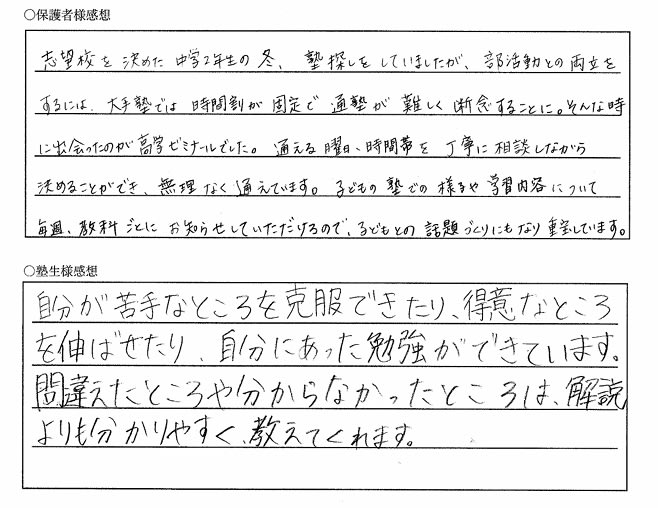 ○保護者様感想
志望校を決めた中学2年生の冬、塾探しをしていましたが、部活動との両立を
するには、大手塾では時間割が固定で通塾が難しく断念することに。そんな時
に出会ったのが高学ゼミナールでした。通える曜日、時間帯を丁寧に相談しながら
決めることができ、無理なく通えています。子どもの塾での様子や学習内容について
毎週、教科ごとにお知らせしていただけるので、子どもとの話題づくりにもなり重宝しています。
○塾生様感想
自分が苦手なところを克服できたり、得意なところ
を伸ばせたり、自分にあった勉強ができています。
間違えたところや分からなかったところは、解説
よりも分かりやすく、教えてくれます。